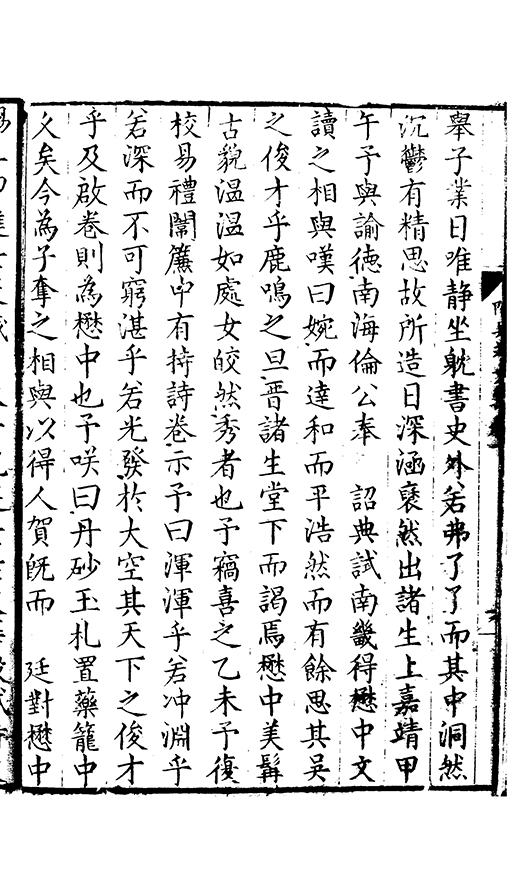 舉子業日唯静坐躭書史外若弗了了而其中洞然
沉鬱有精思故所造日深涵褎然出諸生上嘉靖甲
午予與諭德南海倫公奉 詔典試南畿得懋中文
讀之相與嘆曰婉而達和而平浩然而有餘思其吳
之俊才乎鹿鳴之旦晋諸生堂下而謁焉懋中美髯
古貌温温如處女皎然秀者也予竊喜之乙未予復
校易禮闈簾中有持詩卷示予曰渾渾乎若冲淵乎
若深而不可窮湛乎若光發於大空其天下之俊才
乎及啟卷則為懋中也予咲曰丹砂玉札置藥籠中
乆矣今為子奪之相與以得人賀旣而 廷對懋中